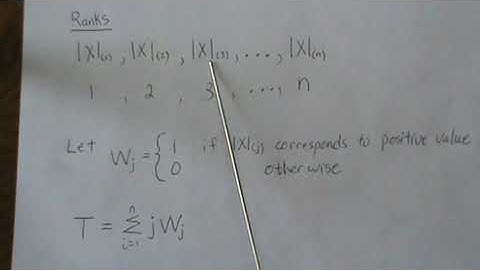 Ranks
|X|(1), |X|(2), |X|(3), ..., |X|(n)
1, 2, 3, ..., n
Let Wj = { 1 if |X|(j) corresponds to positive value
0 otherwise
T = Σ_{i=1}^{n} j Wj